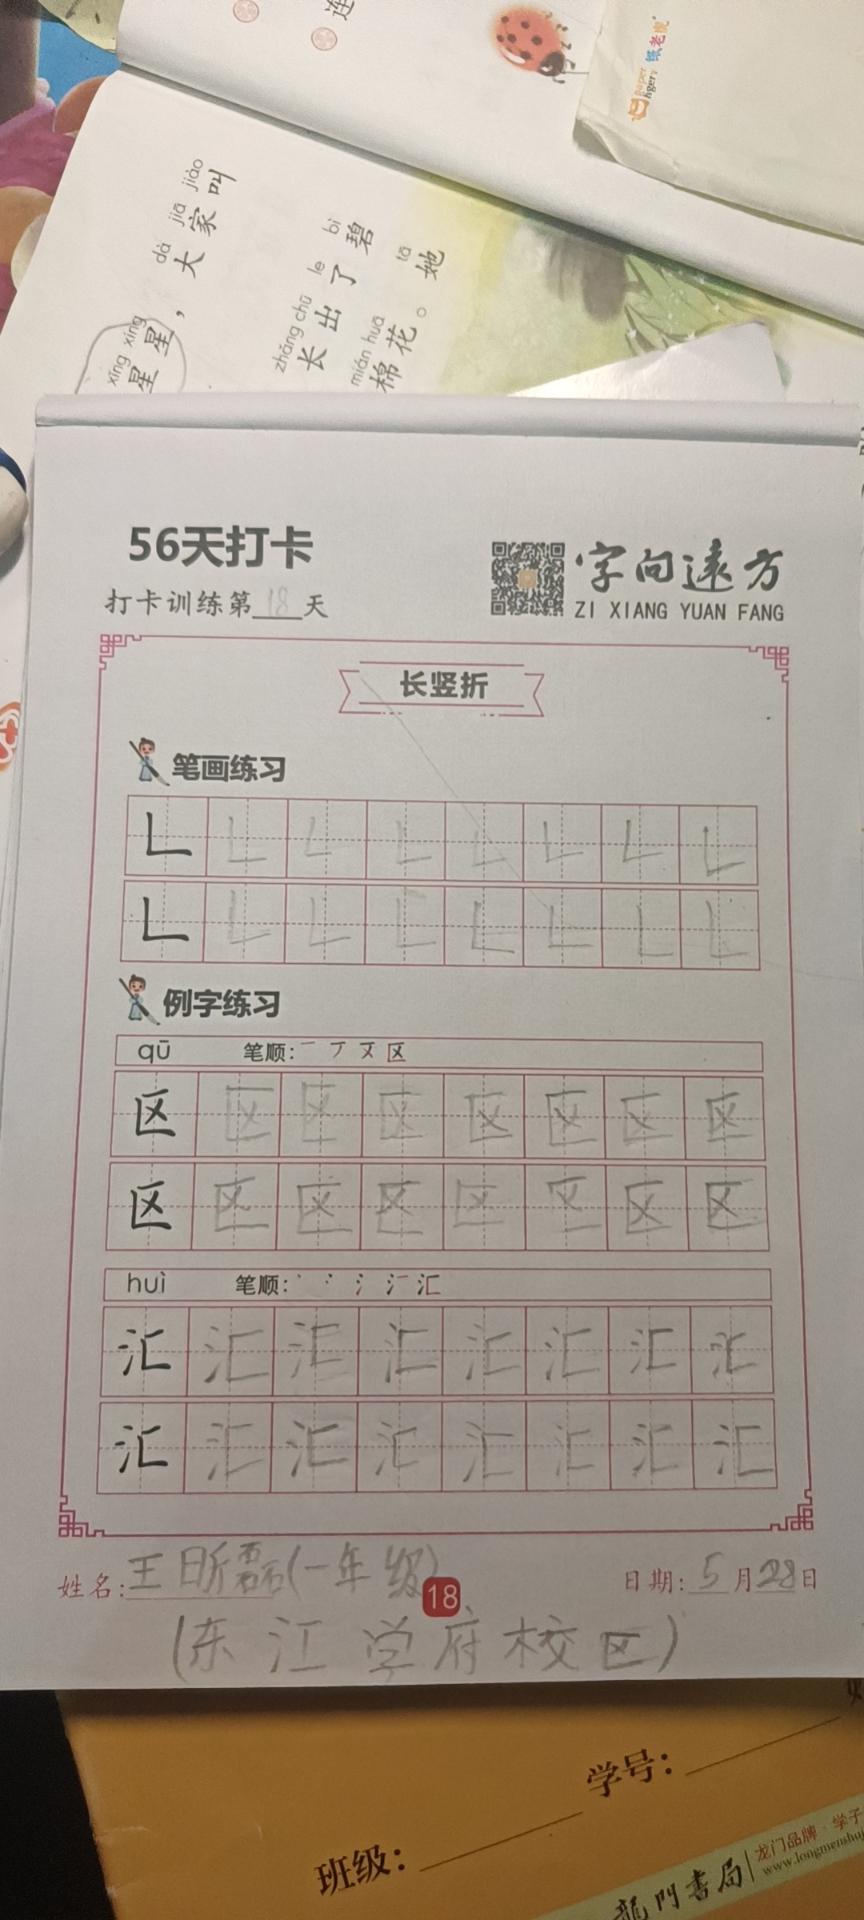 连
paper tiger 纸老虎
xīng xing dà jiā jiào
星星，大家叫
zhǎng chū le bì
长出了碧
mián huā tā
棉花。她
56天打卡
字向远方
打卡训练第18天
ZI XIANG YUAN FANG
长竖折
笔画练习
𠃊 𠃊 𠃊 𠃊 𠃊 𠃊 𠃊 𠃊
𠃊 𠃊 𠃊 𠃊 𠃊 𠃊 𠃊 𠃊
例字练习
qū 笔顺：一 丆 又 区
区 区 区 区 区 区 区 区
区 区 区 区 区 区 区 区
huì 笔顺：丶 冫 氵 汇
汇 汇 汇 汇 汇 汇 汇 汇
汇 汇 汇 汇 汇 汇 汇 汇
姓名：王昕磊（一年级） 日期：5月28日
18
（东江学府校区）
学号：
班级：
龙门品牌·学子
龍門書局 www.longmenshuj